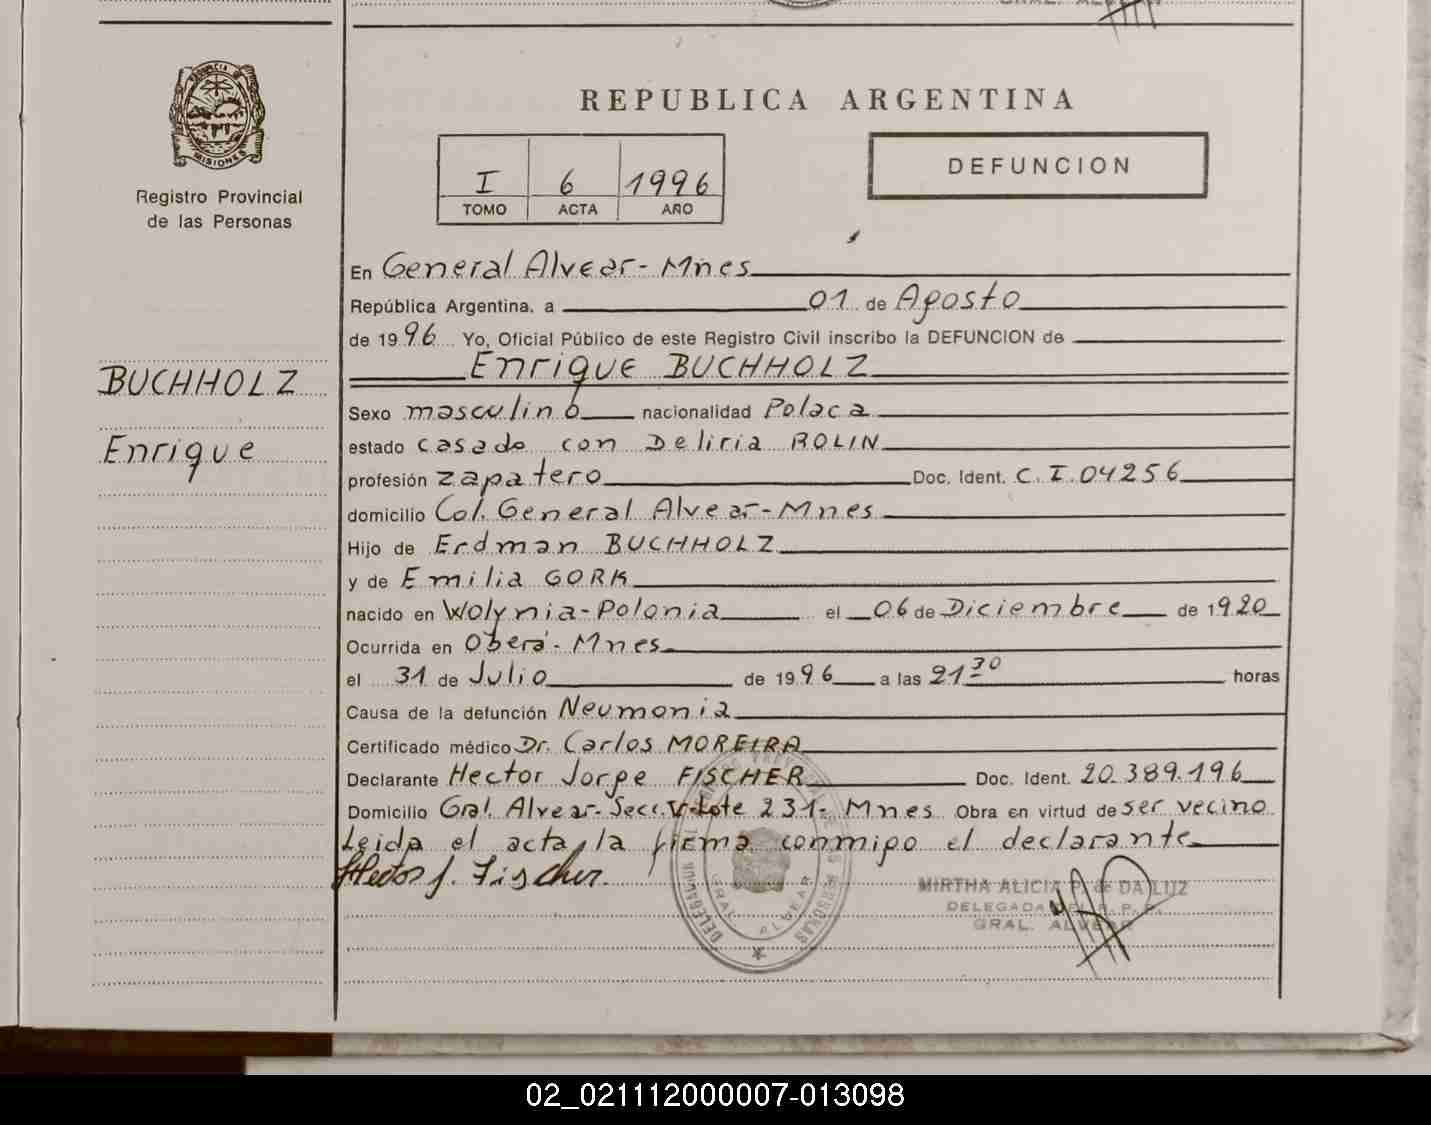 PROVINCIA DE
MISIONES
Registro Provincial
de las Personas
BUCHHOLZ
Enrique
REPUBLICA ARGENTINA
I 6 1996
TOMO ACTA AÑO
DEFUNCION
En General Alvear - Mnes
República Argentina, a 01 de Agosto
de 1996 Yo, Oficial Público de este Registro Civil inscribo la DEFUNCION de
Enrique BUCHHOLZ
Sexo masculino nacionalidad Polaca
estado casado con Deliria ROLIN
profesión zapatero Doc. Ident. C.I.04256
domicilio Col. General Alvear - Mnes
Hijo de Erdman BUCHHOLZ
y de Emilia GORK
nacido en Wolynia - Polonia el 06 de Diciembre de 1920
Ocurrida en Oberá - Mnes
el 31 de Julio de 1996 a las 21 30 horas
Causa de la defunción Neumonia
Certificado médico Dr. Carlos MOREIRA
Declarante Hector Jorge FISCHER Doc. Ident. 20.389.196
Domicilio Gral. Alvear - Secc. V - Lote 231 - Mnes Obra en virtud de ser vecino
Leida el acta, la firma conmigo el declarante
Hector J. Fischer.
GRAL. ALVEAR
MIRTHA ALICIA P. de DA LUZ
DELEGADA DEL R. P. P.
GRAL. ALVEAR
02_021112000007-013098